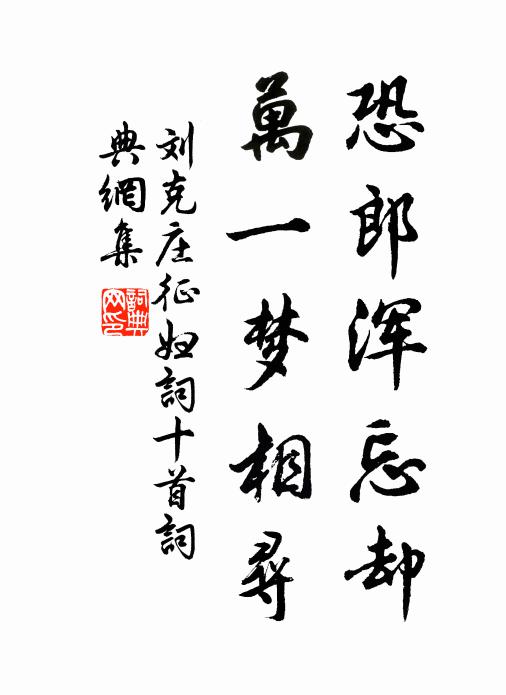 恐郎浑忘却
萬一梦相尋
刘克庄征妇詞十首詞
典網集
詞典网印